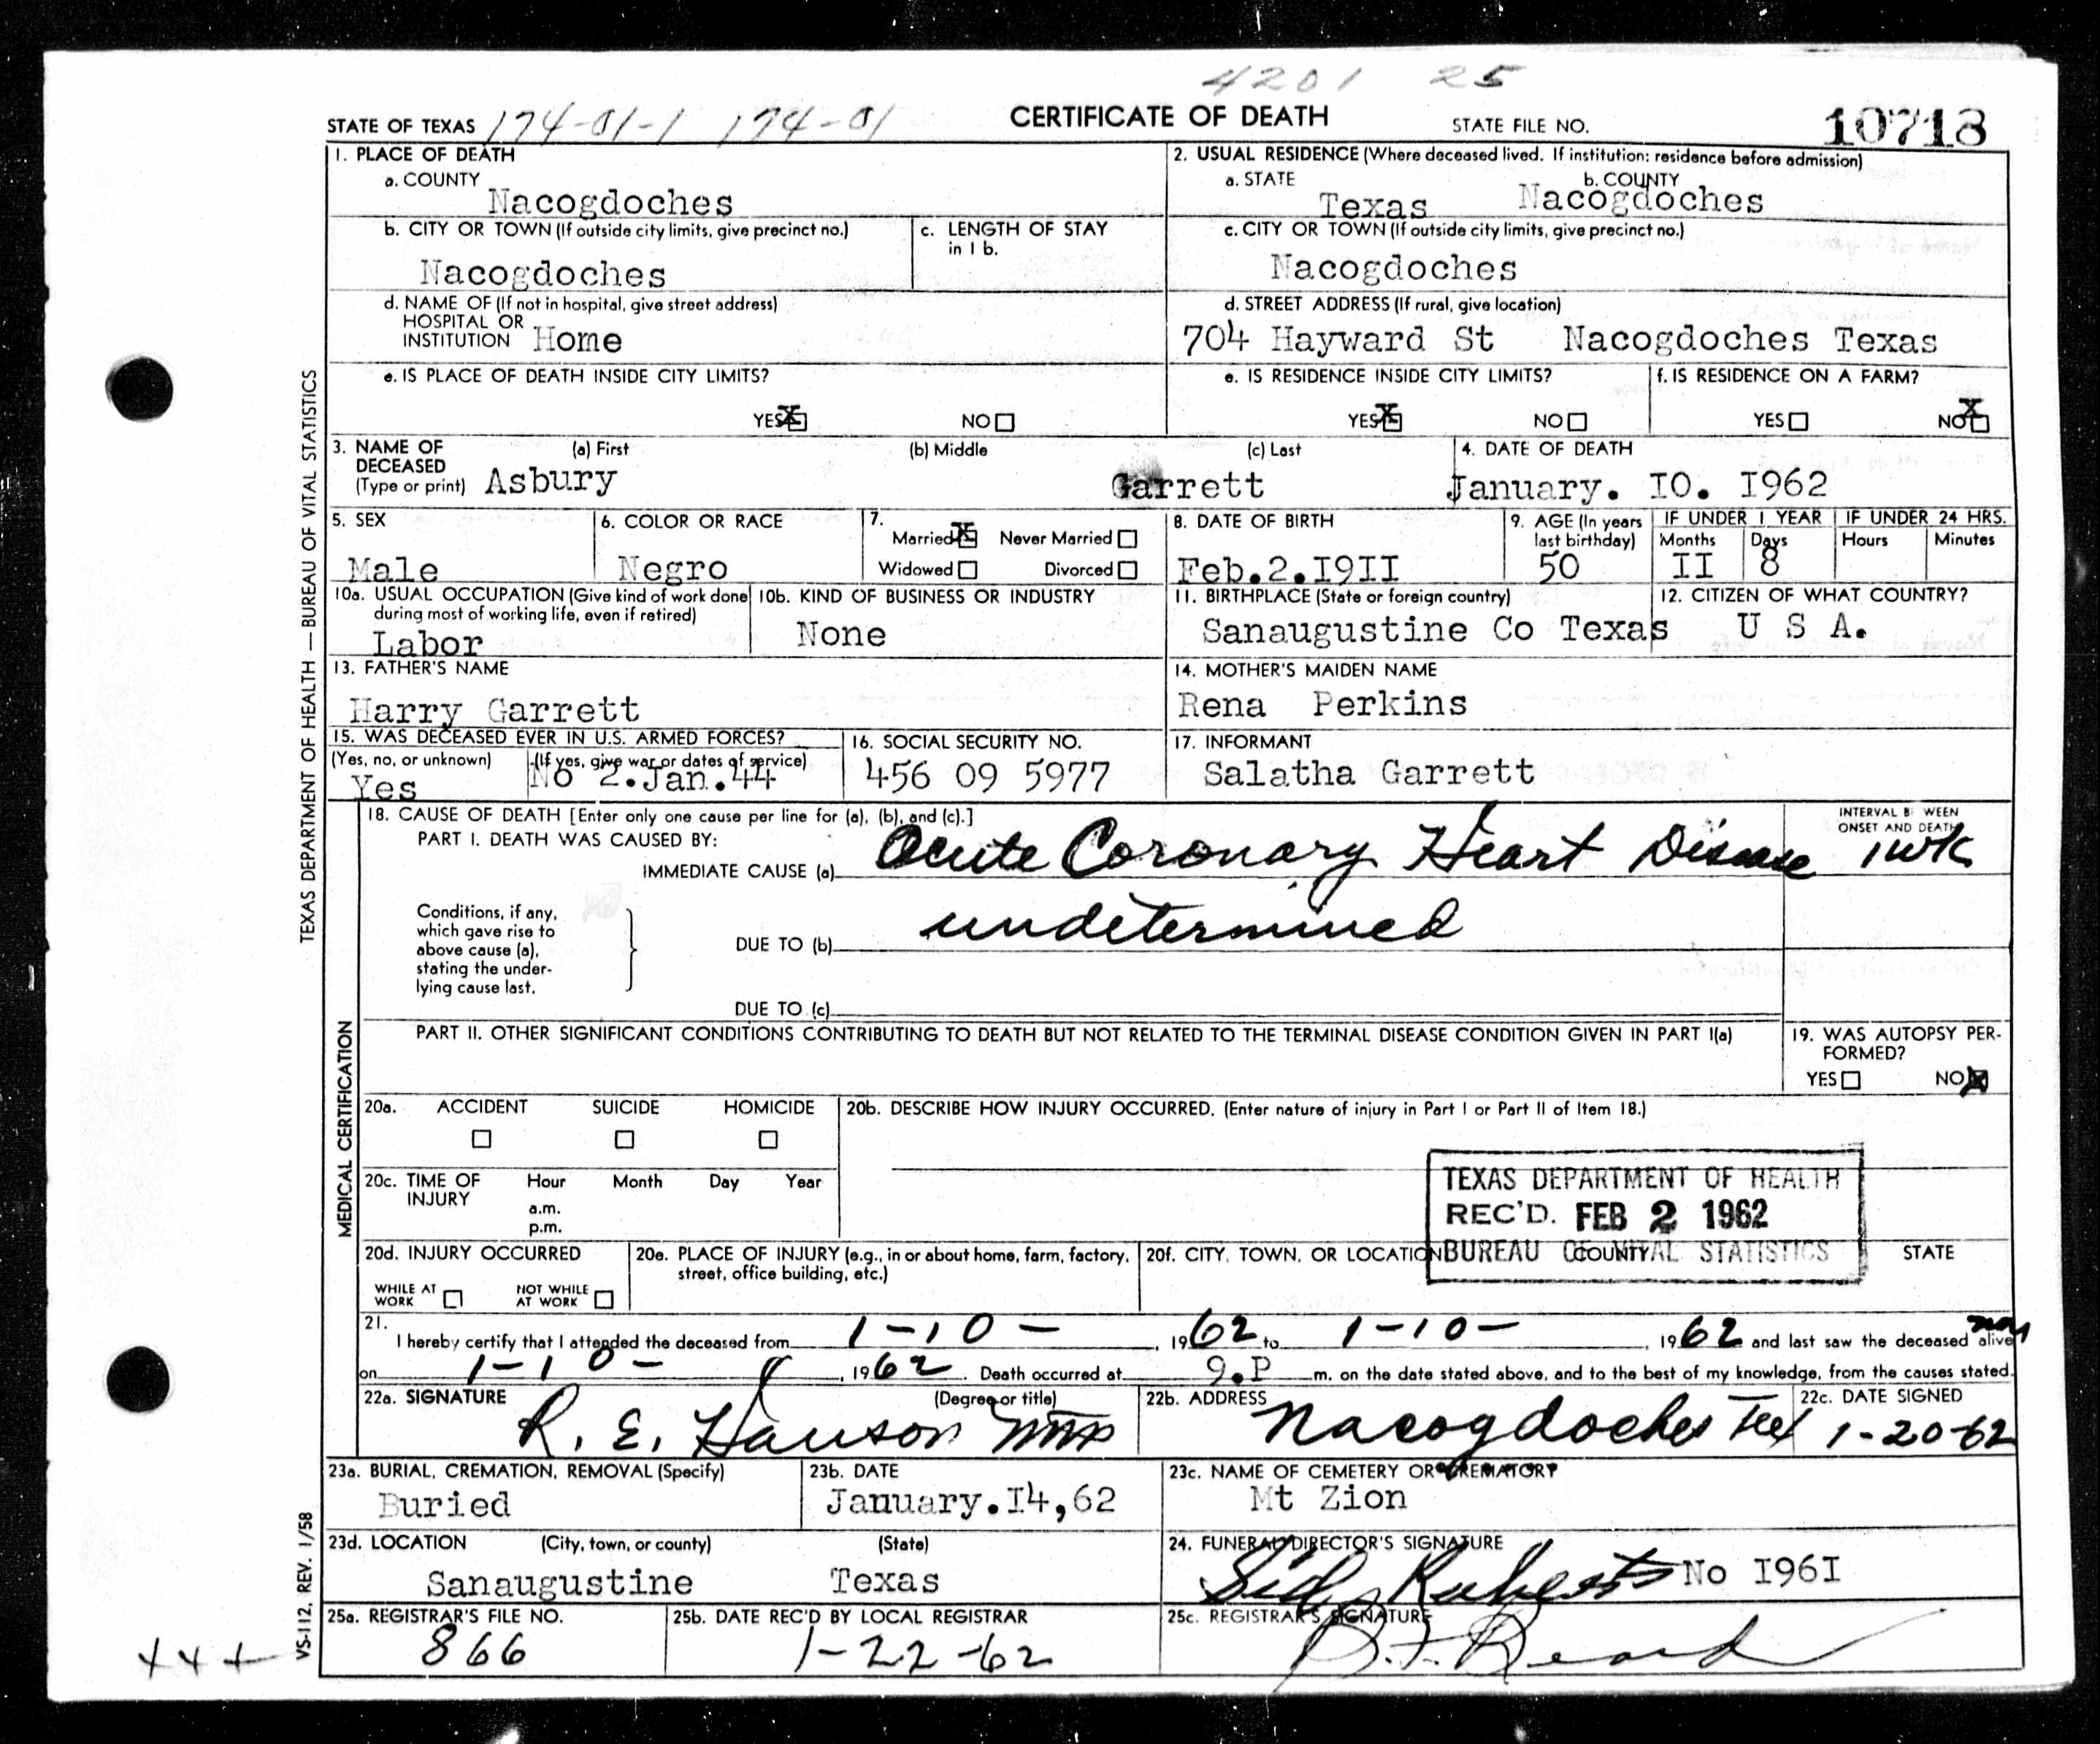 4201 25
STATE OF TEXAS 174-01-1 174-01 CERTIFICATE OF DEATH STATE FILE NO. 10713
1. PLACE OF DEATH
a. COUNTY
Nacogdoches
2. USUAL RESIDENCE (Where deceased lived. If institution: residence before admission)
a. STATE b. COUNTY
Texas Nacogdoches
b. CITY OR TOWN (If outside city limits, give precinct no.)
Nacogdoches
c. LENGTH OF STAY
in 1 b.
c. CITY OR TOWN (If outside city limits, give precinct no.)
Nacogdoches
d. NAME OF (If not in hospital, give street address)
HOSPITAL OR
INSTITUTION Home
d. STREET ADDRESS (If rural, give location)
704 Hayward St Nacogdoches Texas
e. IS PLACE OF DEATH INSIDE CITY LIMITS?
YES X NO
e. IS RESIDENCE INSIDE CITY LIMITS?
YES X NO
f. IS RESIDENCE ON A FARM?
YES NO X
3. NAME OF (a) First (b) Middle (c) Last
DECEASED
(Type or print) Asbury Garrett
4. DATE OF DEATH
January. IO. I962
5. SEX
Male
6. COLOR OR RACE
Negro
7.
Married X Never Married
Widowed Divorced
8. DATE OF BIRTH
Feb.2.I9II
9. AGE (In years
last birthday)
50
IF UNDER 1 YEAR
Months Days
II 8
IF UNDER 24 HRS.
Hours Minutes
10a. USUAL OCCUPATION (Give kind of work done
during most of working life, even if retired)
Labor
10b. KIND OF BUSINESS OR INDUSTRY
None
11. BIRTHPLACE (State or foreign country)
Sanaugustine Co Texas
12. CITIZEN OF WHAT COUNTRY?
U S A.
13. FATHER'S NAME
Harry Garrett
14. MOTHER'S MAIDEN NAME
Rena Perkins
15. WAS DECEASED EVER IN U.S. ARMED FORCES?
(Yes, no, or unknown) (If yes, give war or dates of service)
Yes No 2.Jan.44
16. SOCIAL SECURITY NO.
456 09 5977
17. INFORMANT
Salatha Garrett
18. CAUSE OF DEATH [Enter only one cause per line for (a), (b), and (c).]
PART I. DEATH WAS CAUSED BY:
IMMEDIATE CAUSE (a) Acute Coronary Heart Disease
INTERVAL B WEEN
ONSET AND DEATH
1 wk
Conditions, if any,
which gave rise to
above cause (a),
stating the under-
lying cause last.
DUE TO (b) undetermined
DUE TO (c)
PART II. OTHER SIGNIFICANT CONDITIONS CONTRIBUTING TO DEATH BUT NOT RELATED TO THE TERMINAL DISEASE CONDITION GIVEN IN PART I(a)
19. WAS AUTOPSY PER-
FORMED?
YES NO X
20a. ACCIDENT SUICIDE HOMICIDE
20b. DESCRIBE HOW INJURY OCCURRED. (Enter nature of injury in Part I or Part II of Item 18.)
20c. TIME OF Hour Month Day Year
INJURY a.m.
p.m.
TEXAS DEPARTMENT OF HEALTH
REC'D. FEB 2 1962
BUREAU OF VITAL STATISTICS
20d. INJURY OCCURRED
WHILE AT WORK NOT WHILE AT WORK
20e. PLACE OF INJURY (e.g., in or about home, farm, factory,
street, office building, etc.)
20f. CITY, TOWN, OR LOCATION COUNTY STATE
21.
I hereby certify that I attended the deceased from 1-10- , 1962 to 1-10- , 1962 and last saw the deceased alive
on 1-10- , 1962. Death occurred at 9.P m. on the date stated above, and to the best of my knowledge, from the causes stated.
22a. SIGNATURE (Degree or title)
R. E. Hauson
22b. ADDRESS
Nacogdoches Tex
22c. DATE SIGNED
1-20-62
23a. BURIAL, CREMATION, REMOVAL (Specify)
Buried
23b. DATE
January.I4,62
23c. NAME OF CEMETERY OR CREMATORY
Mt Zion
23d. LOCATION (City, town, or county) (State)
Sanaugustine Texas
24. FUNERAL DIRECTOR'S SIGNATURE
Sid Roberts No I96I
25a. REGISTRAR'S FILE NO.
866
25b. DATE REC'D BY LOCAL REGISTRAR
1-22-62
25c. REGISTRAR'S SIGNATURE
TEXAS DEPARTMENT OF HEALTH — BUREAU OF VITAL STATISTICS
MEDICAL CERTIFICATION
VS-112, REV. 1/58